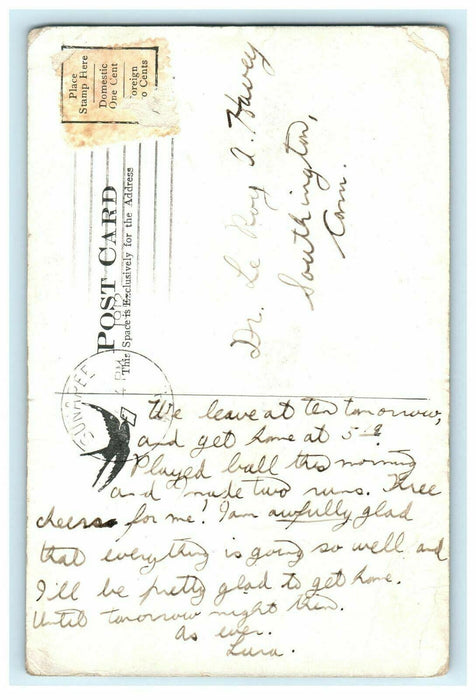 Place
Stamp Here
Domestic
One Cent
oreign
o Cents
POST CARD
This Space is Exclusively for the Address
SUNAPEE
4 PM
Dr. Le Roy A. Harvey
Southington,
Conn.
We leave at ten tomorrow,
and get home at 5 19
Played ball this morning
and made two runs. Three
cheers for me! I am awfully glad
that everything is going so well and
I'll be pretty glad to get home.
Until tomorrow night then.
As ever.
Lura.